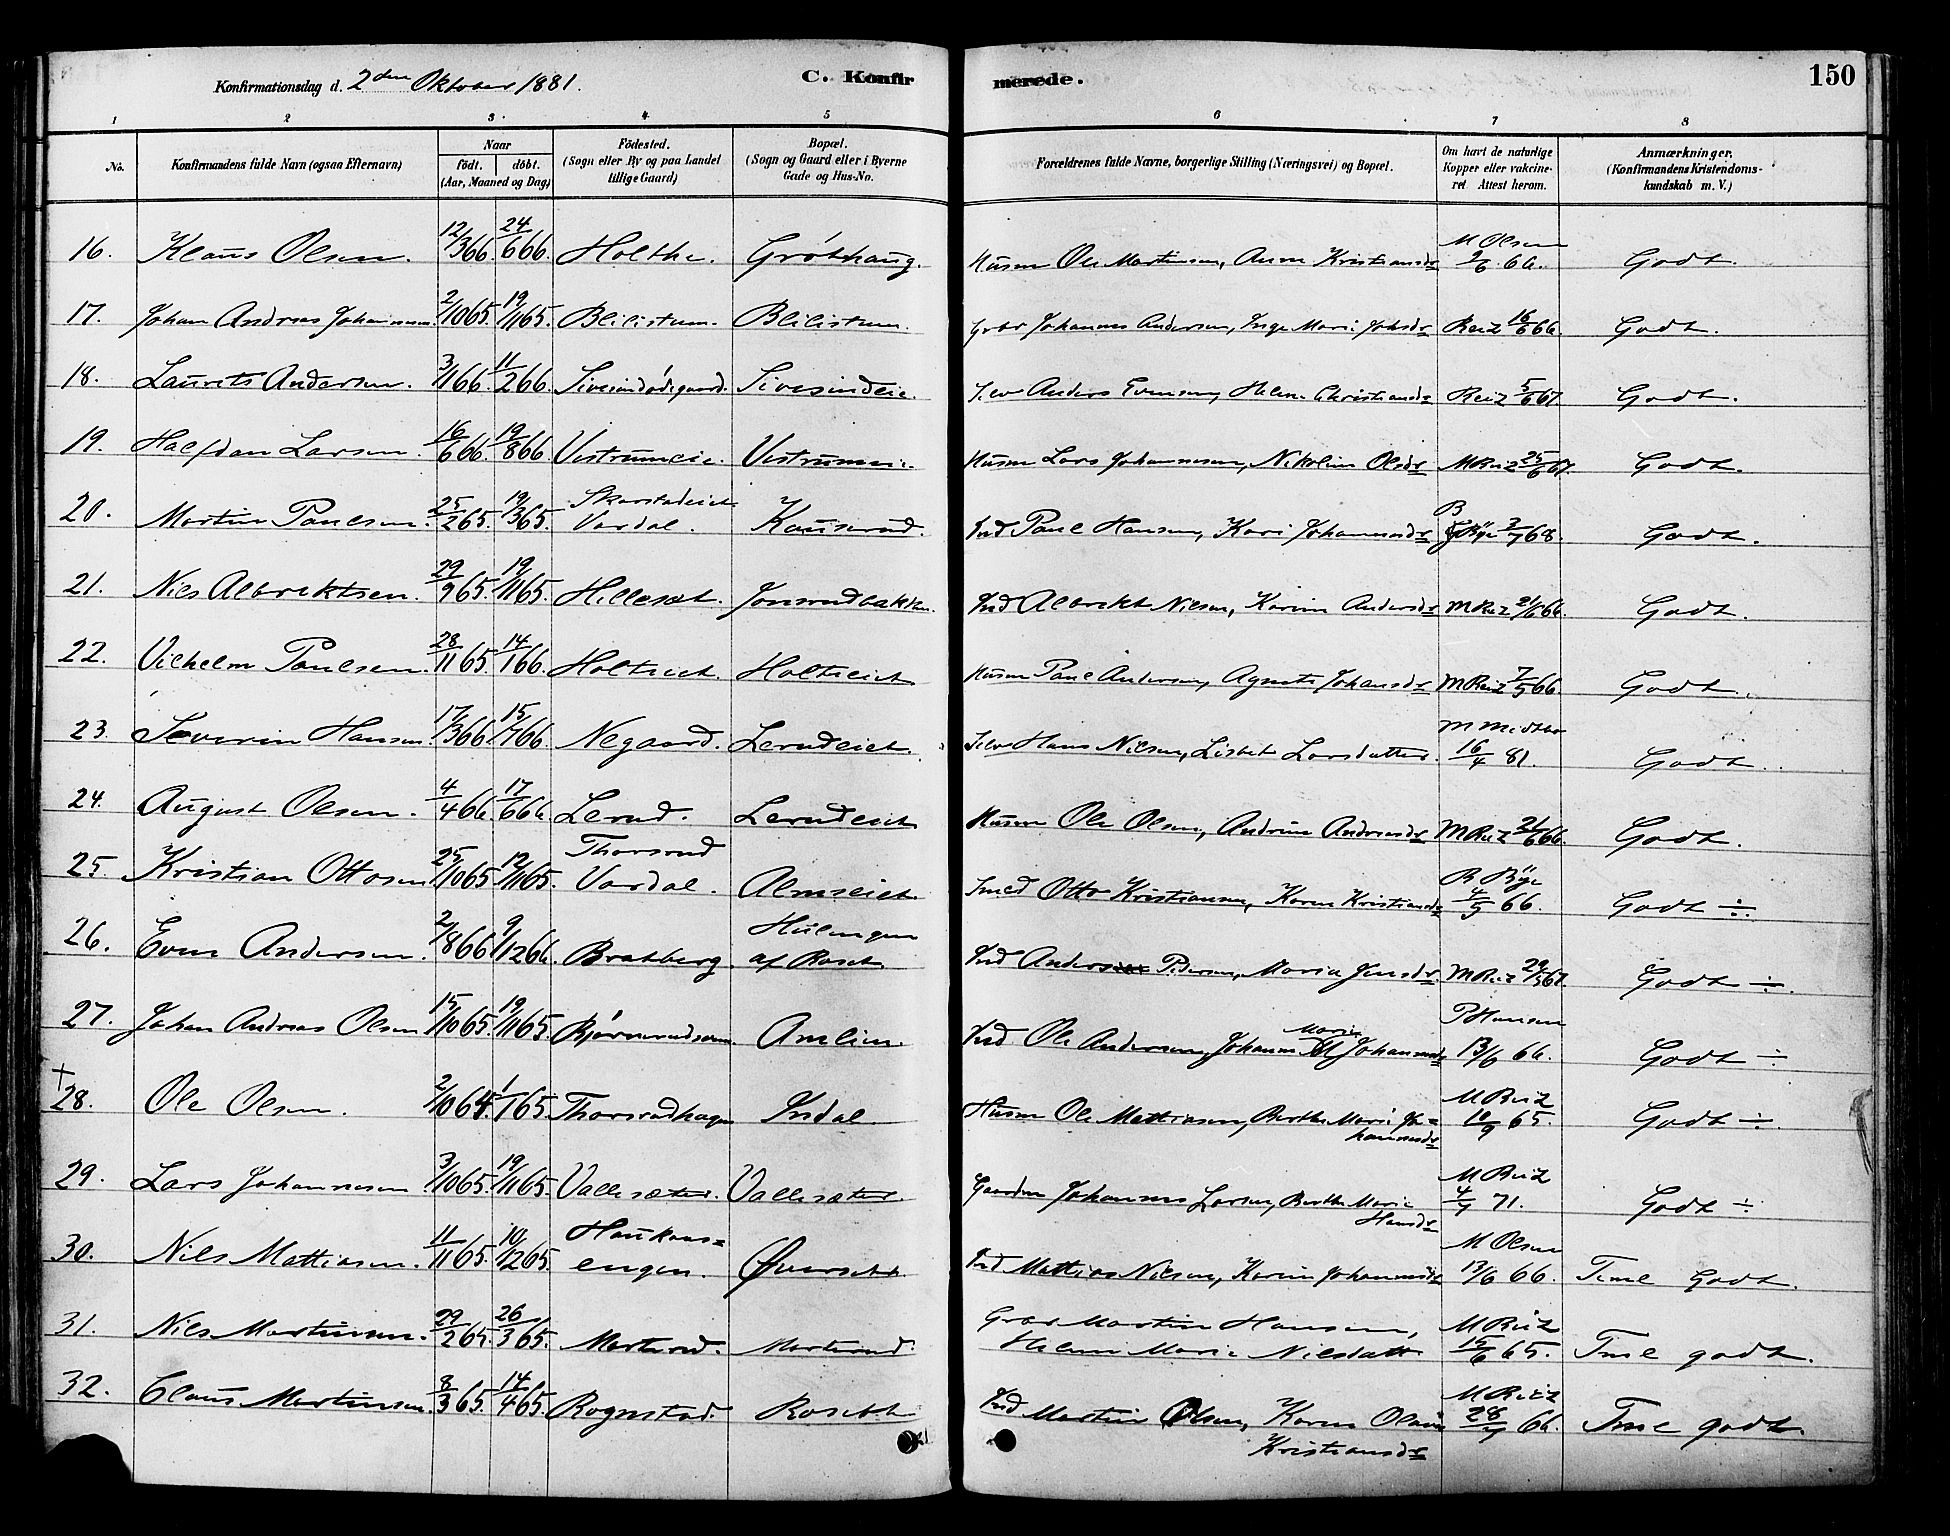 Konfirmationsdag d. 2den Oktober 1881.
C. Konfirmerede.
150
1 2 3 4 5 6 7 8
No.
Konfirmandens fulde Navn (ogsaa Efternavn)
Naar
födt. döbt.
(Aar, Maaned og Dag)
Födested.
(Sogn eller By og paa Landet
tillige Gaard)
Bopæl.
(Sogn og Gaard eller i Byerne
Gade og Hus-No.
Forældrenes fulde Navne, borgerlige Stilling (Næringsvei) og Bopæl.
Om havt de naturlige
Kopper eller vakcine-
ret. Attest herom.
Anmærkninger.
(Konfirmandens Kristendoms-
kundskab m. V.)
16. Klaus Olsen. 12/3 66. 24/6 66. Holthe. Gröthaug. Husm Ole Martinsen, Anne Kristiansdr M Olsen 9/6 66. Godt.
17. Johan Andreas Johannesen 2/10 65. 19/11 65. Blilistuen. Blilistuen. Gbr Johannes Andersen, Inge Marie Johsdr Reiz 16/6 66. Godt.
18. Laurits Andersen. 3/1 66. 11/2 66. Sivesindødegaard. Sivesindeie. Selv Anders Evensen, Helene Christiansdr Reiz 5/6 67. Godt.
19. Halfdan Larsen. 16/6 66. 19/8 66. Vestrumeie. Vestrumeie. Husm Lars Johannesen, Nikoline Olsdr M Reiz 25/6 67. Godt.
20. Martin Paulsen. 25/2 65. 19/3 65. Skarstadeiet Vardal. Kausrud. Ind Paul Hansen, Kari Johannesdr B Bye 3/7 68. Godt.
21. Nils Albrektsen. 29/9 65. 19/11 65. Hilleset. Jonsrudbakken. Ind Albrekt Nilsen, Karine Andersdr M Reiz 21/6 66. Godt.
22. Vilhelm Paulsen. 28/11 65. 14/1 66. Holtseiet. Holtseiet. Husm Paul Andersen, Agnete Johansdr M Reiz 7/5 66. Godt.
23. Severin Hansen. 17/3 66. 15/7 66. Negaard. Lerudeiet. Selv Hans Nilsen, Lisbet Larsdatter. M Midtbø 16/4 81. Godt.
24. August Olsen. 4/4 66. 17/6 66. Lerud. Lerudeiet. Husm Ole Olsen, Andrine Andreasdr M Reiz 21/6 66. Godt.
25. Kristian Ottosen 25/10 65. 12/11 65. Thorsrud Vardal. Almseiet. Smed Otto Kristiansen, Karen Kristiansdr B Bye 4/5 66. Godt ÷.
26. Even Andersen. 2/8 66. 9/12 66. Bratberg. Hülengen af Roset. Ind Anders Pedersen, Maria Jensdr. M Reiz 29/5 67. Godt ÷.
27. Johan Andreas Olsen 15/10 65. 19/11 65. Bjørnerudsven. Amlien. Ind Ole Andersen, Johanne Marie Johannesdr P Hansen 13/6 66. Godt ÷
† 28. Ole Olsen. 2/10 64. 1/1 65. Thorsrudhagen Indal. Husm Ole Mathiasen, Berthe Marie Jo=
hannesdr M Reiz 10/9 65. Godt ÷.
29. Lars Johannesen 3/10 65. 19/11 65. Vallesæter. Vallesæter. Gaardm Johannes Larsen, Berthe Marie
Hansdr M Reiz 4/7 71. Godt ÷
30. Nils Mathiasen. 11/11 65. 10/12 65. Haukaas=
engen. Øverset. Ind Mathias Nilsen, Karine Johannesdr M Olsen 13/6 66. Tme Godt.
31. Nils Martinsen. 29/2 65. 26/3 65. Morterud. Morterud. Gbr Martin Hansen,
Helene Marie Nilsdatt M Reiz 15/6 65. Tme godt.
32. Claus Martinsen. 8/3 65. 14/4 65. Rognstad. Rosett Ind Martin Olsen, Karen Olava
Kristiansdr M Reiz 28/7 66. Tme godt.